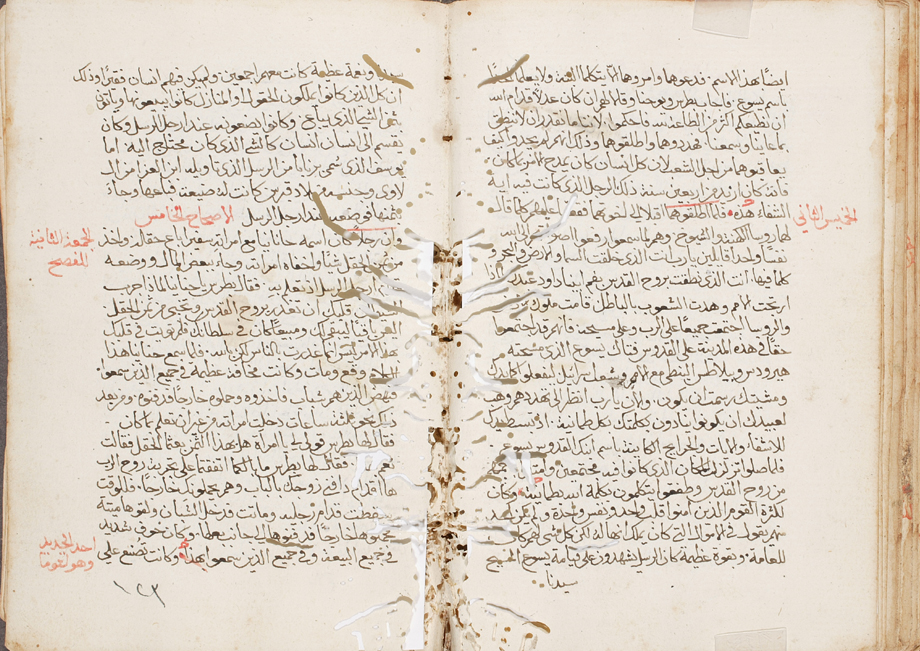 ايضاً بهذا الاسم. فدعوهما وامروهما الا يتكلما البتة ولا يعلما
باسم يسوع. فاجاب بطرس ويوحنا وقالا لهم ان كان عدلاً قدام الله
ان نطيعكم اكثر من الطاعة لله فاحكموا. لاننا ما نقدر ان لا ننطق
بما عاينا وسمعنا. فهددوهما واطلقوهما وذلك انهم لم يجدوا كيف
يعاقبوهما من اجل الشعب لان كل انسان كان يمدح الله بما كان.
فانه كان ازيد من اربعين سنة ذلك الرجل الذي كانت فيه اية
الشفاء هذه. فلما اطلقوهما اقبلا الى اخوتهما فقصا عليهم كلما قال
الخميس الثاني
لهما روسا الكهنة والشيوخ. وهم لما سمعوا رفعوا اصواتهم الى الله
نفساً واحداً قائلين يا رب انت الذي خلقت السما والارض والبحر و
كلما فيها. انت الذي نطقت بروح القدس بفم ابينا داود عبدك لماذا
ارتجت الامم وهدت الشعوب بالباطل قامت ملوك الارض
والروسا اجتمعت جميعاً على الرب وعلى مسيحه. فانهم قد اجتمعوا
حقاً في هذه المدينة على القدوس فتاك يسوع الذي مسحته
هيرودس وبيلاطس النبطي مع الامم وشعب اسرائيل ليفعلوا كل يدك
ومشيتك رسمت ان يكون. والان يا رب انظر الى تهددهم وهب
لعبيدك ان يكونوا ينادون بكلمتك بكل طمانية. اذ تبسط يدك
للاشفا والايات والجرايح الكاينة باسم ابنك القدوس يسوع
فلما صلوا تزلزل المكان الذي كانوا فيه مجتمعين وامتلوا
من روح القدس وطفقوا يتكلمون بكلمة الله بطمانينة. وكان
لكثرة القوم الذين امنوا قلب واحد ونفس واحدة ولم يكن احد
منهم يقول في الاموال التي كان يملك انها له لكن كل شي لهم كان
للعامة. وبقوة عظيمة كان الرسل يشهدون على قيامة يسوع المسيح
سيدنا
ونعمة عظيمة كانت معهم اجمعين. ولم يكن فيهم انسان فقيراً وذلك
ان كل الذين كانوا يملكون الحقول او المنازل كانوا يبيعونها وياتون
بثمن الشي الذي يباع. وكانوا يضعونه عند ارجل الرسل وكان
يقسم الى انسان انسان كالشي الذي كان محتاج اليه. اما
يوسف الذي سمي برنابا من الرسل الذي تاويله ابن العزا من ال
لاوي وجنسه من بلاد قبرس كانت له ضيعة فباعها وجاء
بثمنها فوضعه عند ارجل الرسل الاصحاح الخامس
وان رجلاً كان اسمه حنانيا مع امراته سفيرا باع حقله. واخذ
الجمعة الثانية
للفصح
من ثمن الحقل شياً واخفاه امراته وجاء ببعض المال ووضعه
قدام ارجل الرسل
الشيطان قلبك ان تغدر بروح القدس وتخبي من ثمن الحقل
القرايا البس قبل كان لك ومبيعاً كان في سلطانك فلم نويت في قلبك
بهذا الامر ليس انما غدرت بالناس لكن بالله. فلما سمع حنانيا هذا
الكلام وقع ومات وكانت مخافة عظيمة في جميع الذين سمعوا
فنهض الذين هم شباب فاخذوه وحملوه خارجاً فدفنوه. ومن بعد
ذلك نحو ثلثة ساعات دخلت امراته من غير ان تعلم بما كان
فقال لها بطرس قولي لي ايا امراة هل بهذا الثمن بعتما الحقل فقالت
نعم. فقال لها بطرس ما بالكما اتفقتما على تجربة روح الرب
ها اقدام دافني زوجك بالباب وهم يحملونك خارجاً. فللوقت
سقطت قدام رجليه وماتت فدخل الشبان ولقوها ميتة
فحملوها خارجاً فدفنوها الى جانب بعلها وكان خوف شديد
احد الجديد
وهو لتوما
في جميع البيعة وفي جميع الذين سمعوا بهذا. وكانت تصنع على
١٢٣